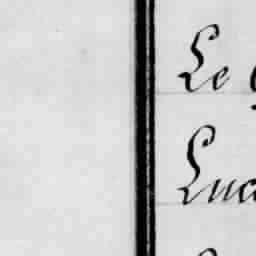 Le
Luc